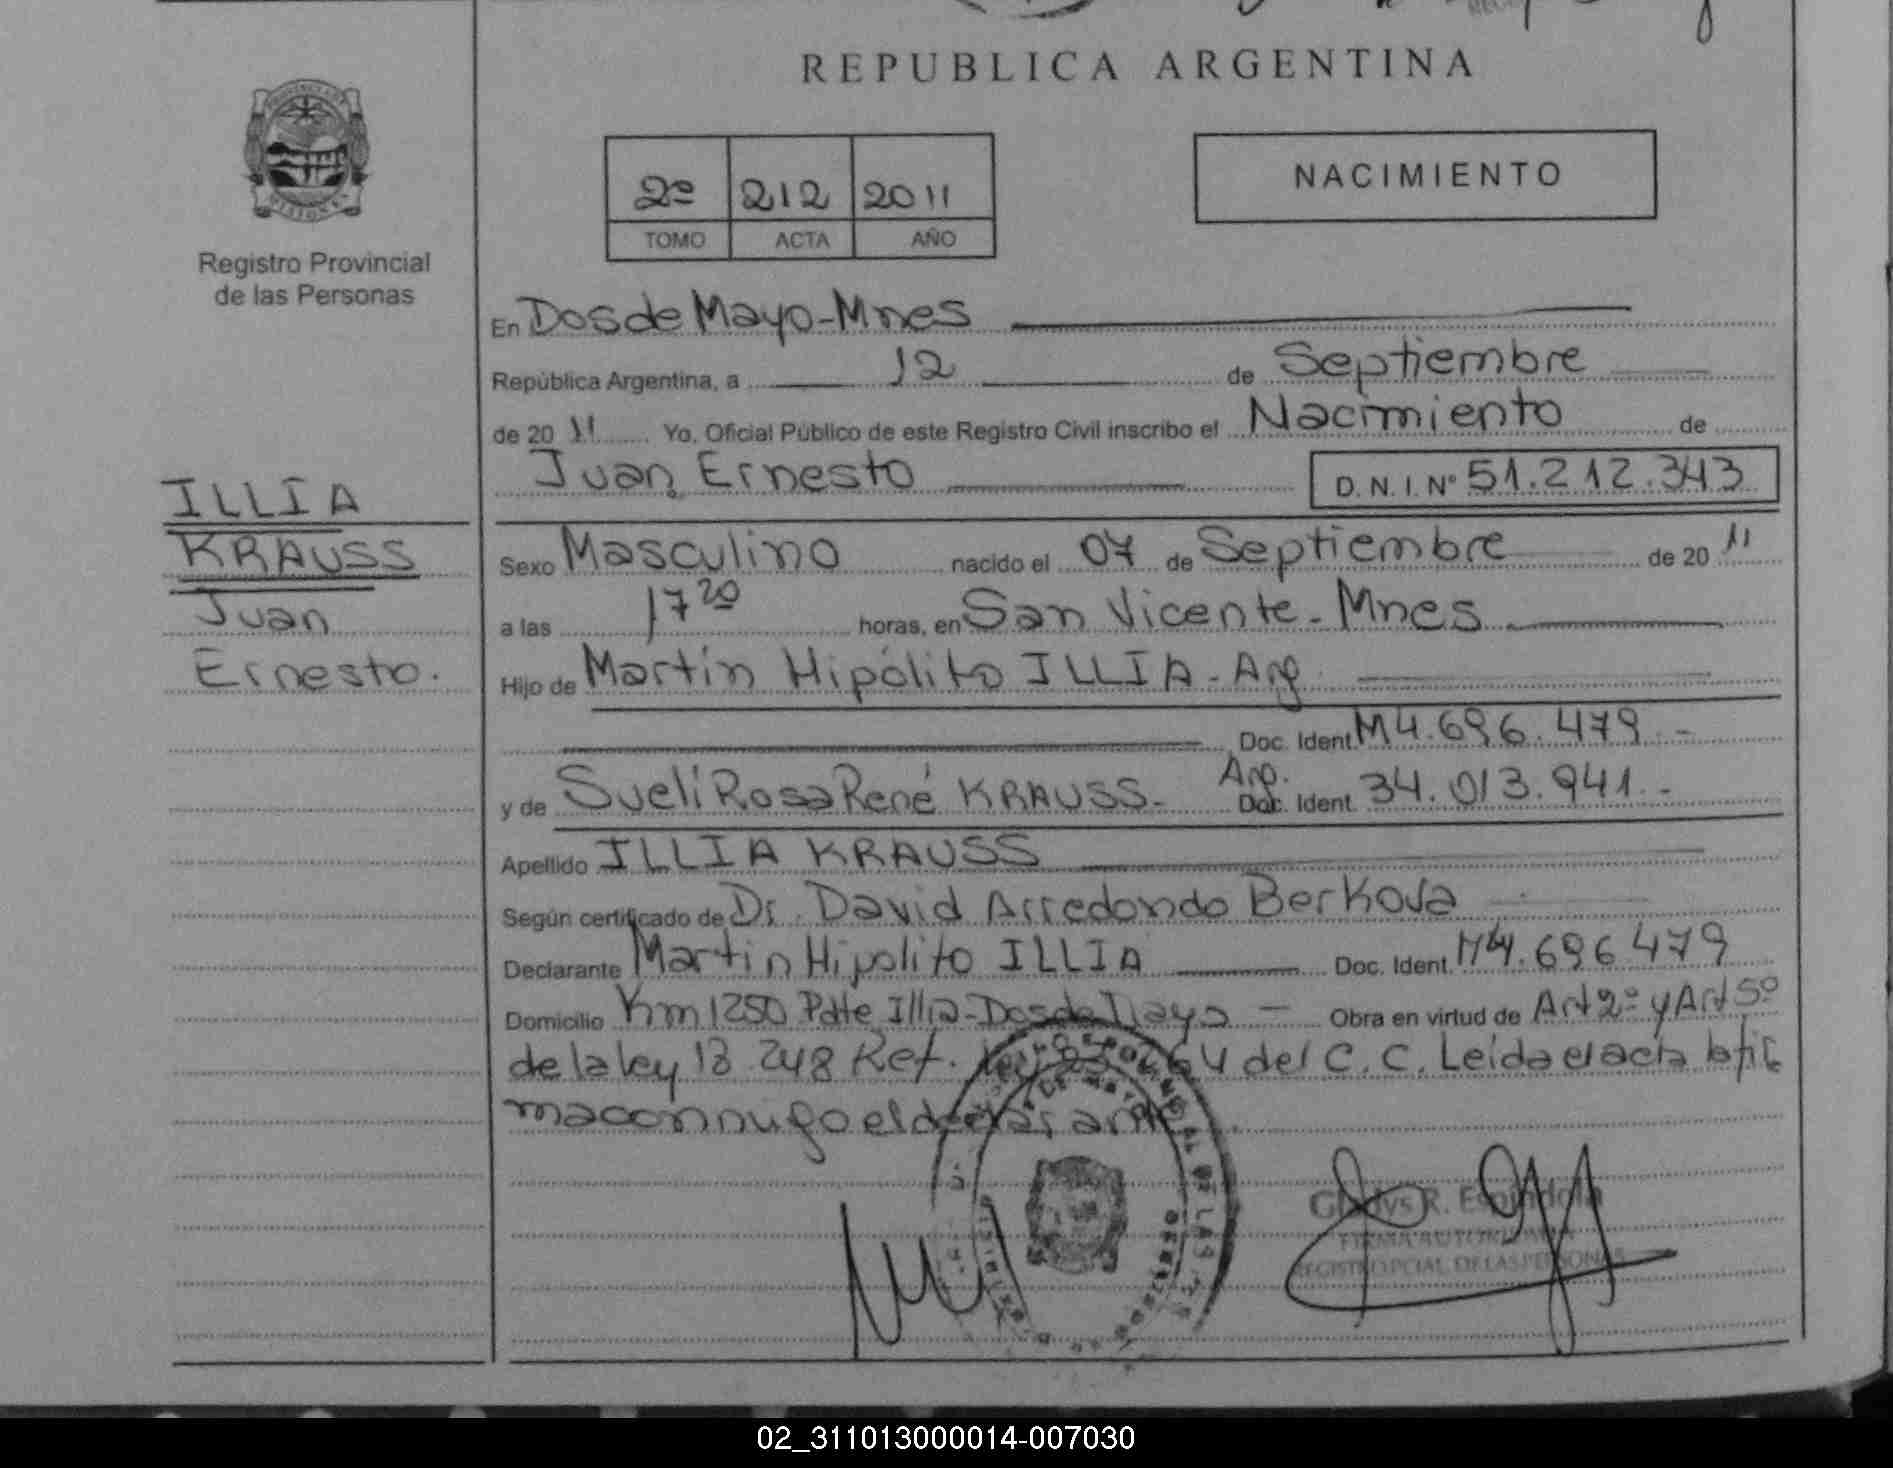 REPUBLICA ARGENTINA
2º 212 2011
TOMO ACTA AÑO
NACIMIENTO
Registro Provincial
de las Personas
ILLIA
KRAUSS
Juan
Ernesto.
En Dos de Mayo-Mnes
República Argentina, a 12 de Septiembre
de 2011 Yo, Oficial Público de este Registro Civil inscribo el Nacimiento de
Juan Ernesto D.N.I. Nº 51.212.343
Sexo Masculino nacido el 07 de Septiembre de 2011
a las 17 20 horas, en San Vicente - Mnes
Hijo de Martín Hipólito ILLIA - Arg.
Doc. Ident. M4.696.479.-
y de Sueli Rosa René KRAUSS- Arg. Doc. Ident. 34.013.941.-
Apellido ILLIA KRAUSS
Según certificado de Dr. David Arredondo Berkova
Declarante Martin Hipolito ILLIA Doc. Ident. M4.696.479
Domicilio Km 1250 Pdte Illia-Dos de Mayo - Obra en virtud de Art 2º y Art 5º
de la ley 18.248 Ref. ley del C.C. Leída el acta la fir
ma conmigo el declarante.
Gladys R. Espíndola
FIRMA AUTORIZADA
REGISTRO PCIAL. DE LAS PERSONAS
02_311013000014-007030